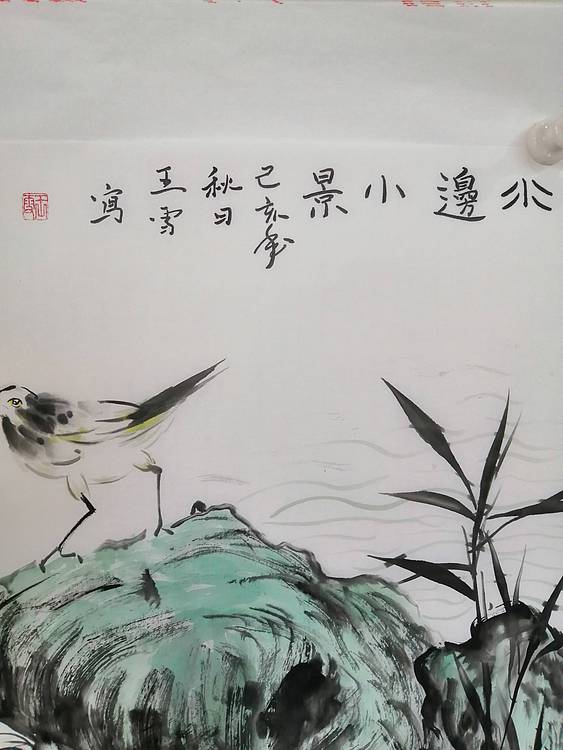 水邊小景
己亥年
秋日
王雪
寫
王雪